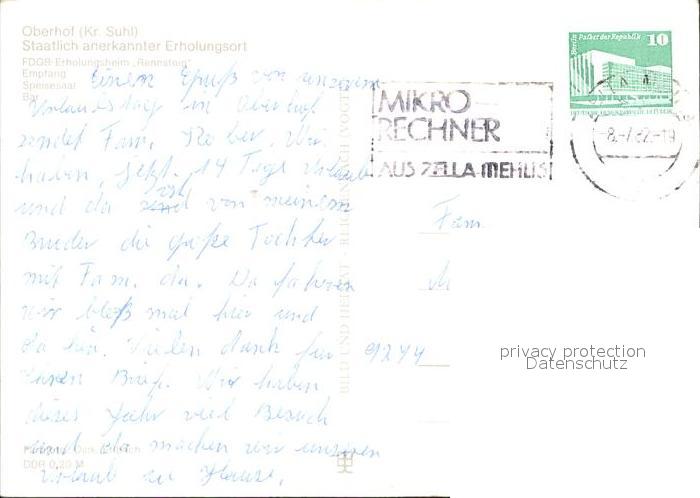 Oberhof (Kr. Suhl)
Staatlich anerkannter Erholungsort
FDGB-Erholungsheim „Rennsteig“
Empfang
Speisesaal
Bar
Einen Gruß von unserem
Urlaubstag in Oberhof
sendet Fam. Wir
haben jetzt 14 Tage Urlaub
und da sind von meinem
Bruder die große Tochter
mit Fam. da. Da fahren
wir bloß mal hier und
da hin. Vielen dank für
Euren Brief. Wir haben
dieses Jahr viel Besuch
und da machen wir unseren
Urlaub zu Hause.
DDR 0,20 M
BILD UND HEIMAT
MIKRO
RECHNER
AUS ZELLA-MEHLIS
Berlin Palast der Republik
10
-8.-7.82-19
Fam.
M
9244
privacy protection
Datenschutz